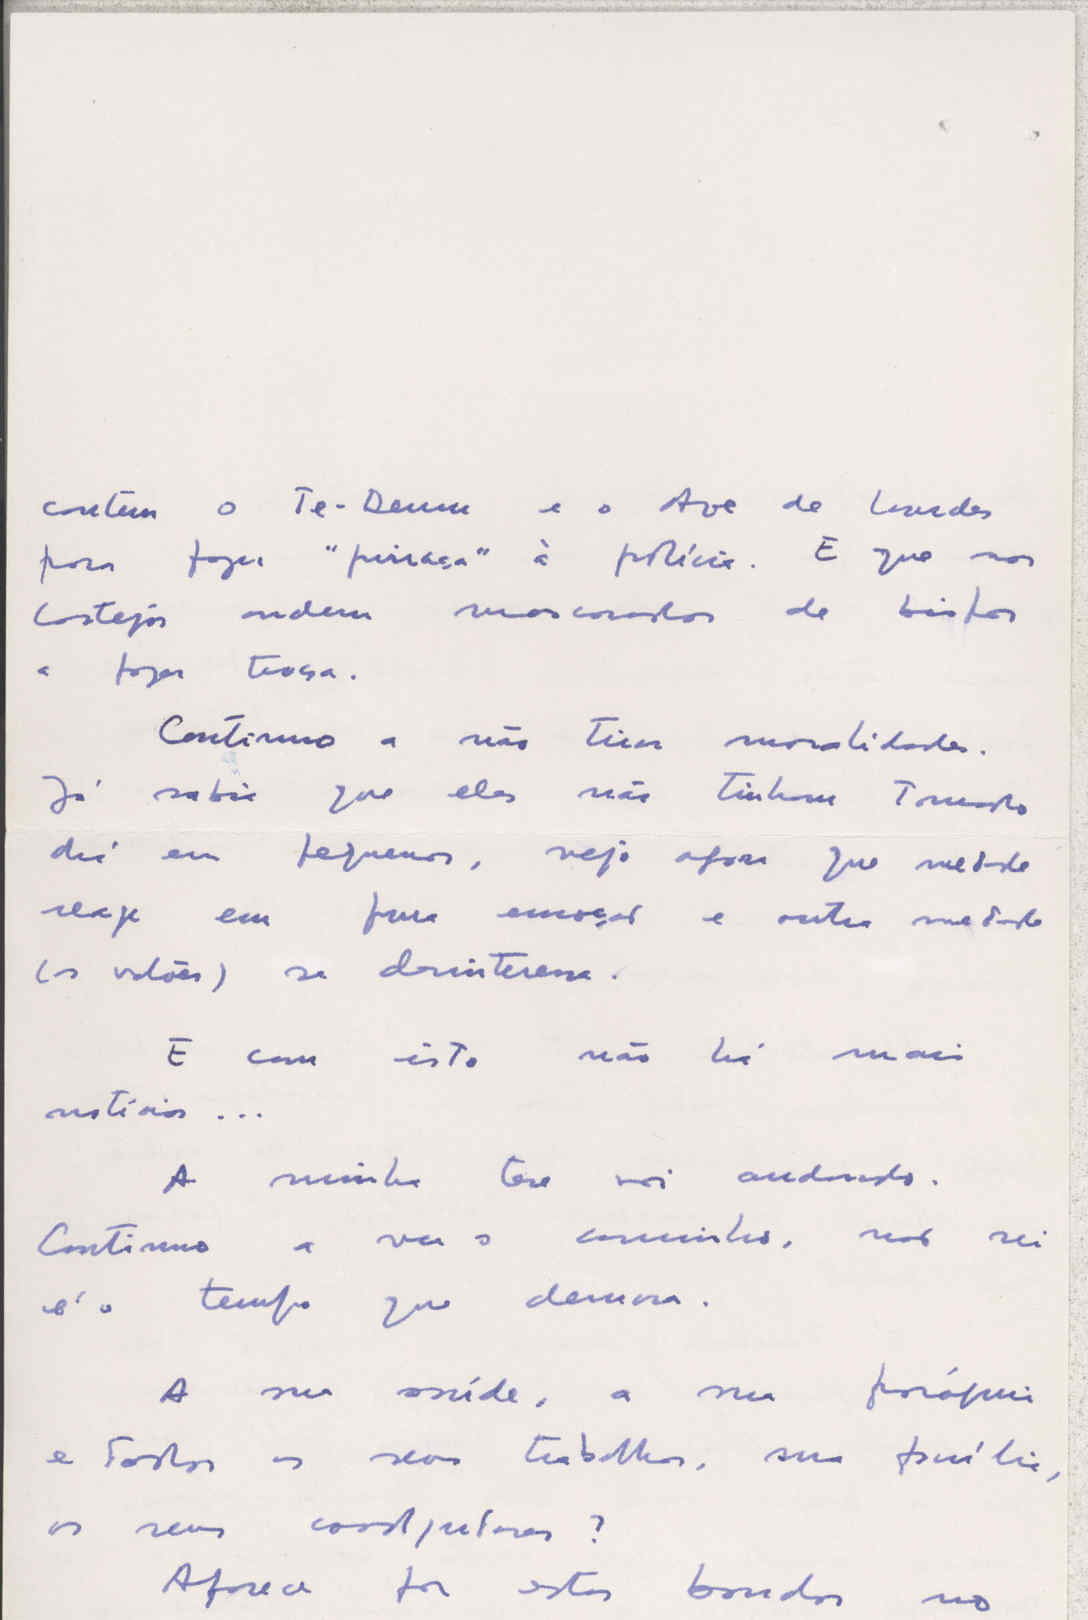 cantam o Te-Deum e o Ave de Lourdes
para fazer "pirraça" à polícia. E que nos
cortejos andam mascarados de bispos
a fazer troça.
Continuo a não tirar moralidades.
Já sabia que eles não tinham tomado
chá em pequenos, vejo agora que metade
reage em pura emoção e outra metade
(os vilões) se desinteressa.
E com isto não há mais
notícias...
A minha tese vai andando.
Continuo a ver o caminho, não sei
é o tempo que demora.
A sua saúde, a sua paróquia
e todos os seus trabalhos, sua família,
os seus coadjutores?
Aparece por estas bandas no